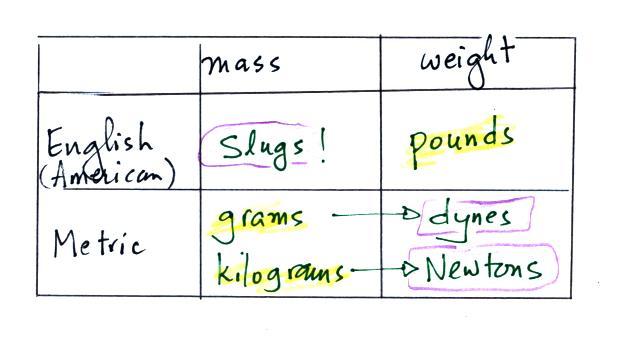 mass weight
English
(American)
Slugs! pounds
Metric
grams dynes
kilograms Newtons